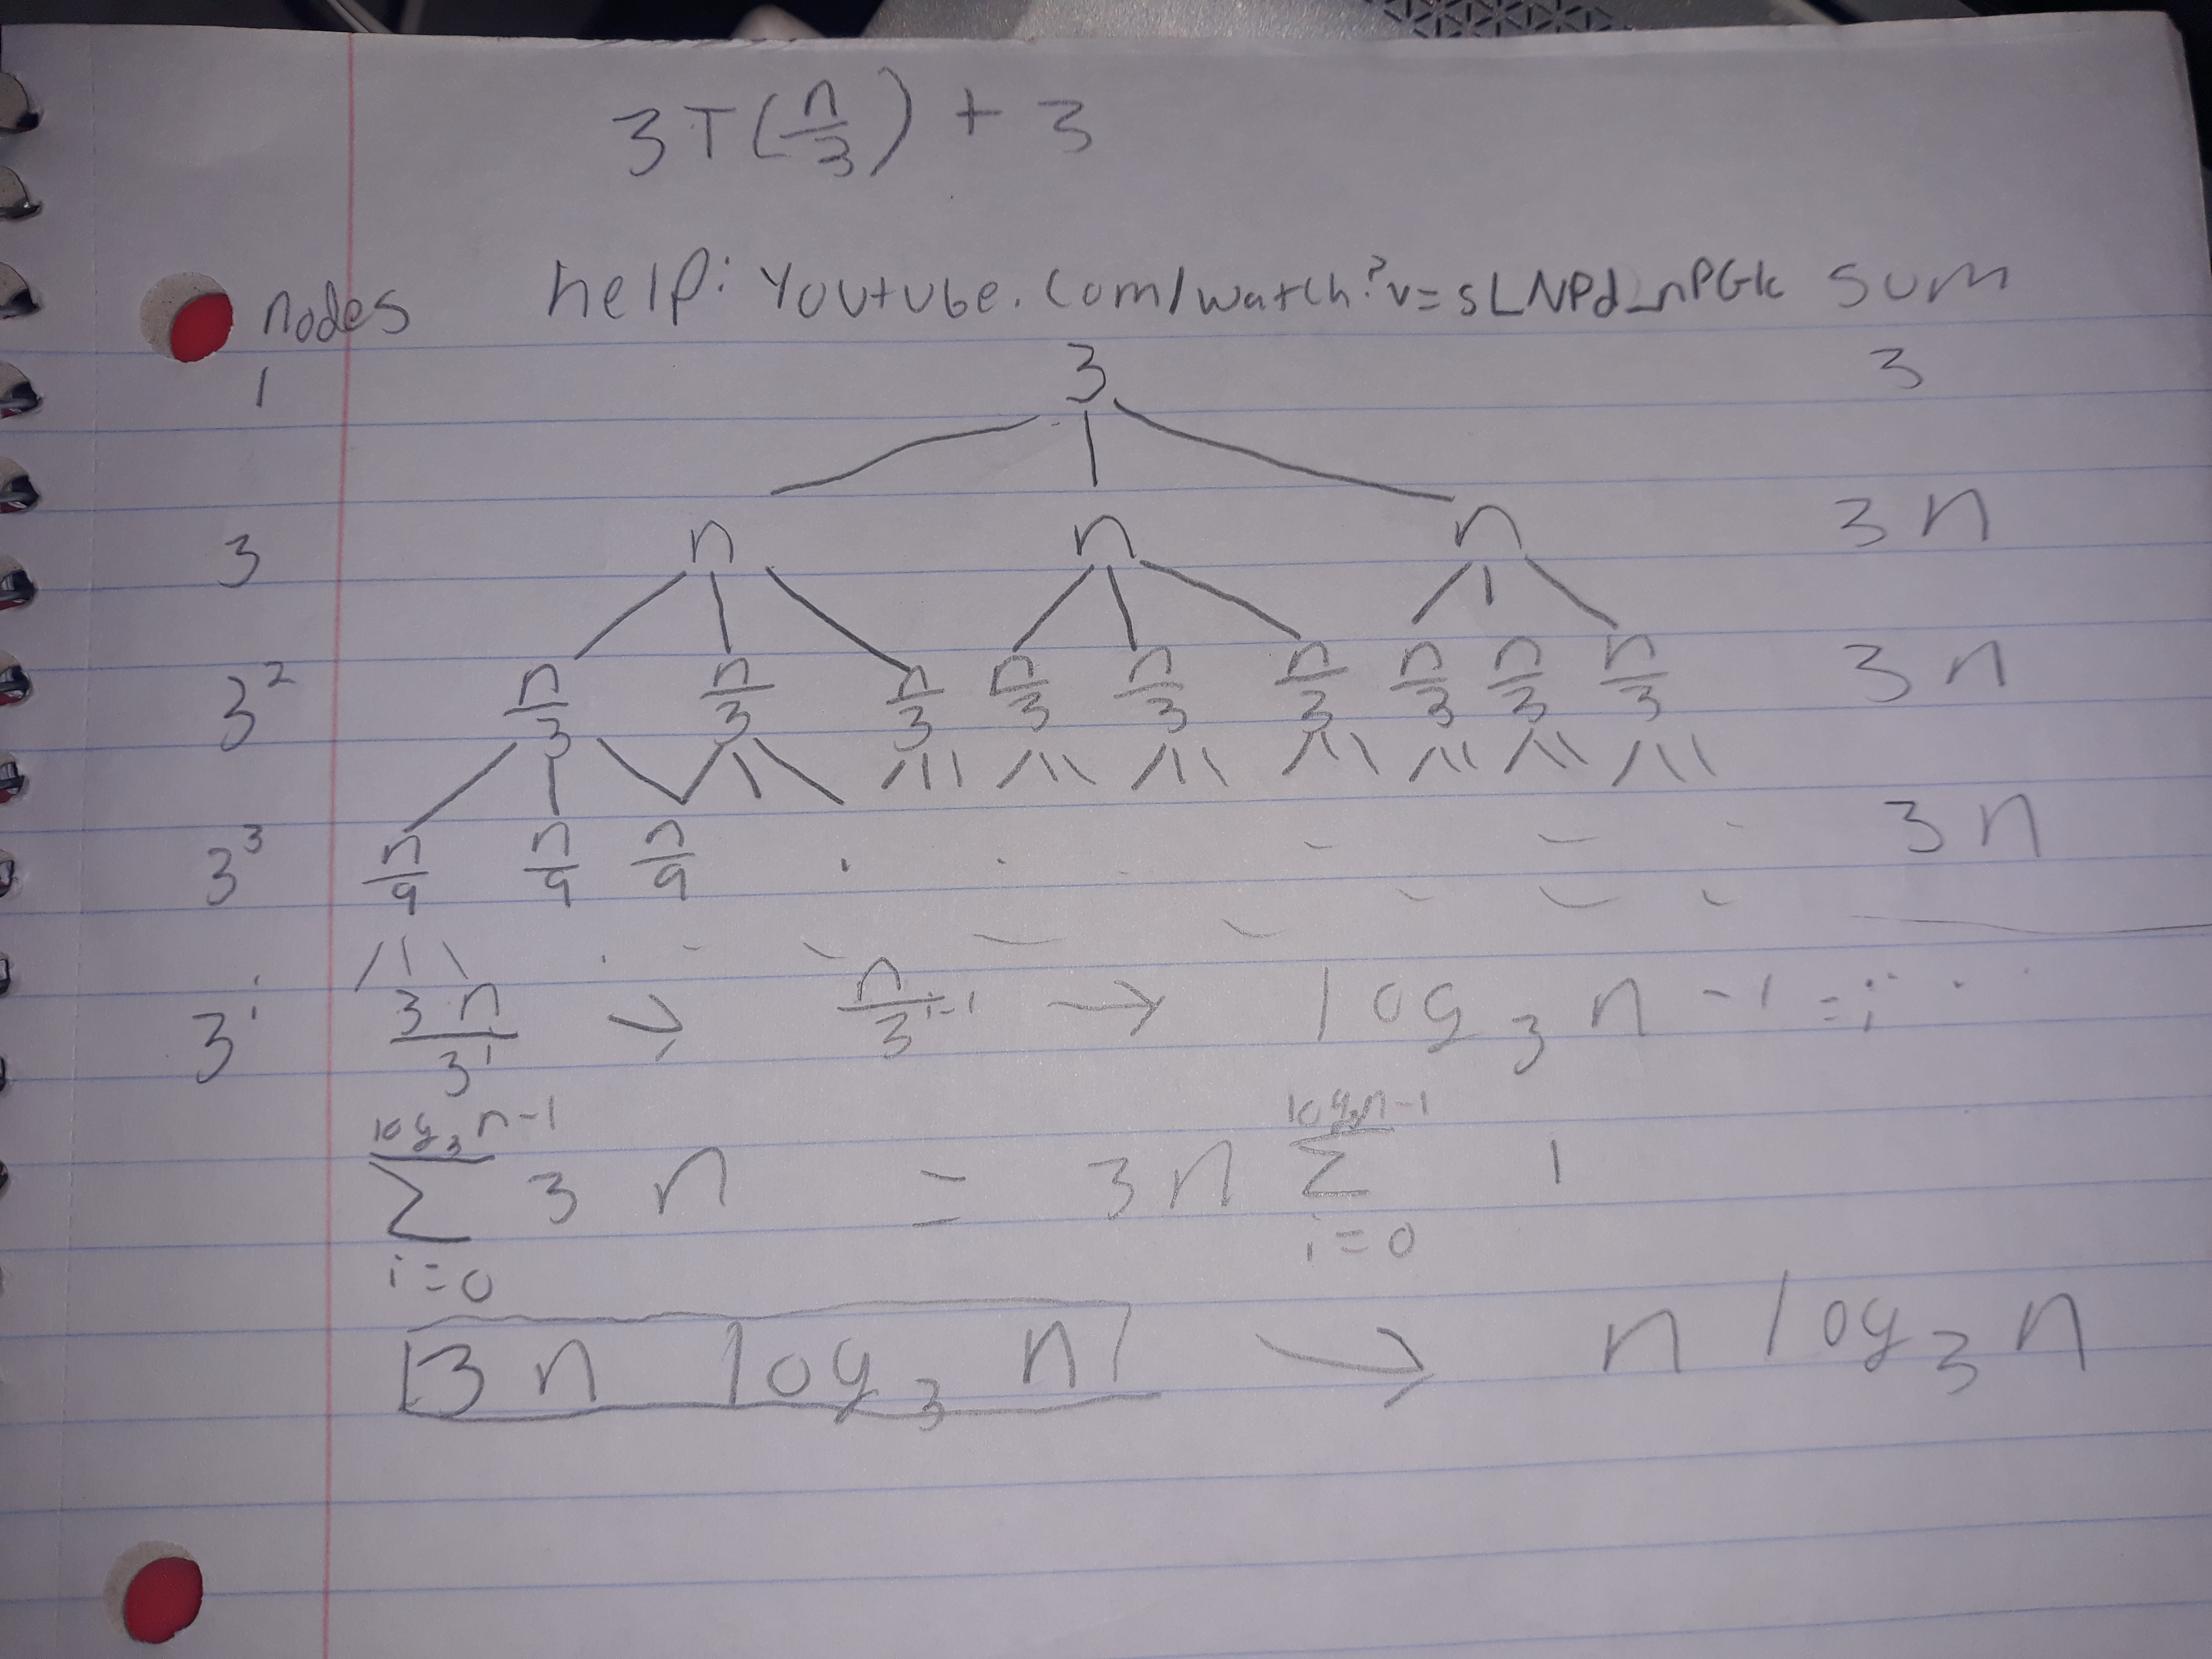 3T(n/3) + 3
nodes help: Youtube.com/watch?v=sLNPd_nPGk sum
1 3 3
3 n n n 3n
3^2 n/3 n/3 n/3 n/3 n/3 n/3 n/3 n/3 n/3 3n
3^3 n/9 n/9 n/9 . . . 3n
3^i 3n/3^i → n/3^(i-1) → log_3 n -1 = i
∑_(i=0)^(log_3 n-1) 3n = 3n ∑_(i=0)^(log_3 n-1) 1
3n log_3 n → n log_3 n